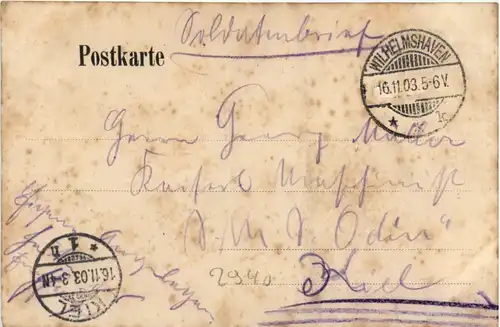 Soldatenbrief
Postkarte
WILHELMSHAVEN
16.11.03.5-6V.
* 1c.
Herrn Georg Müller
Kaiserl Maschinist
S. M. S. Odin"
Kiel
2940
KIEL
16.11.03.3-4N
* 1 h